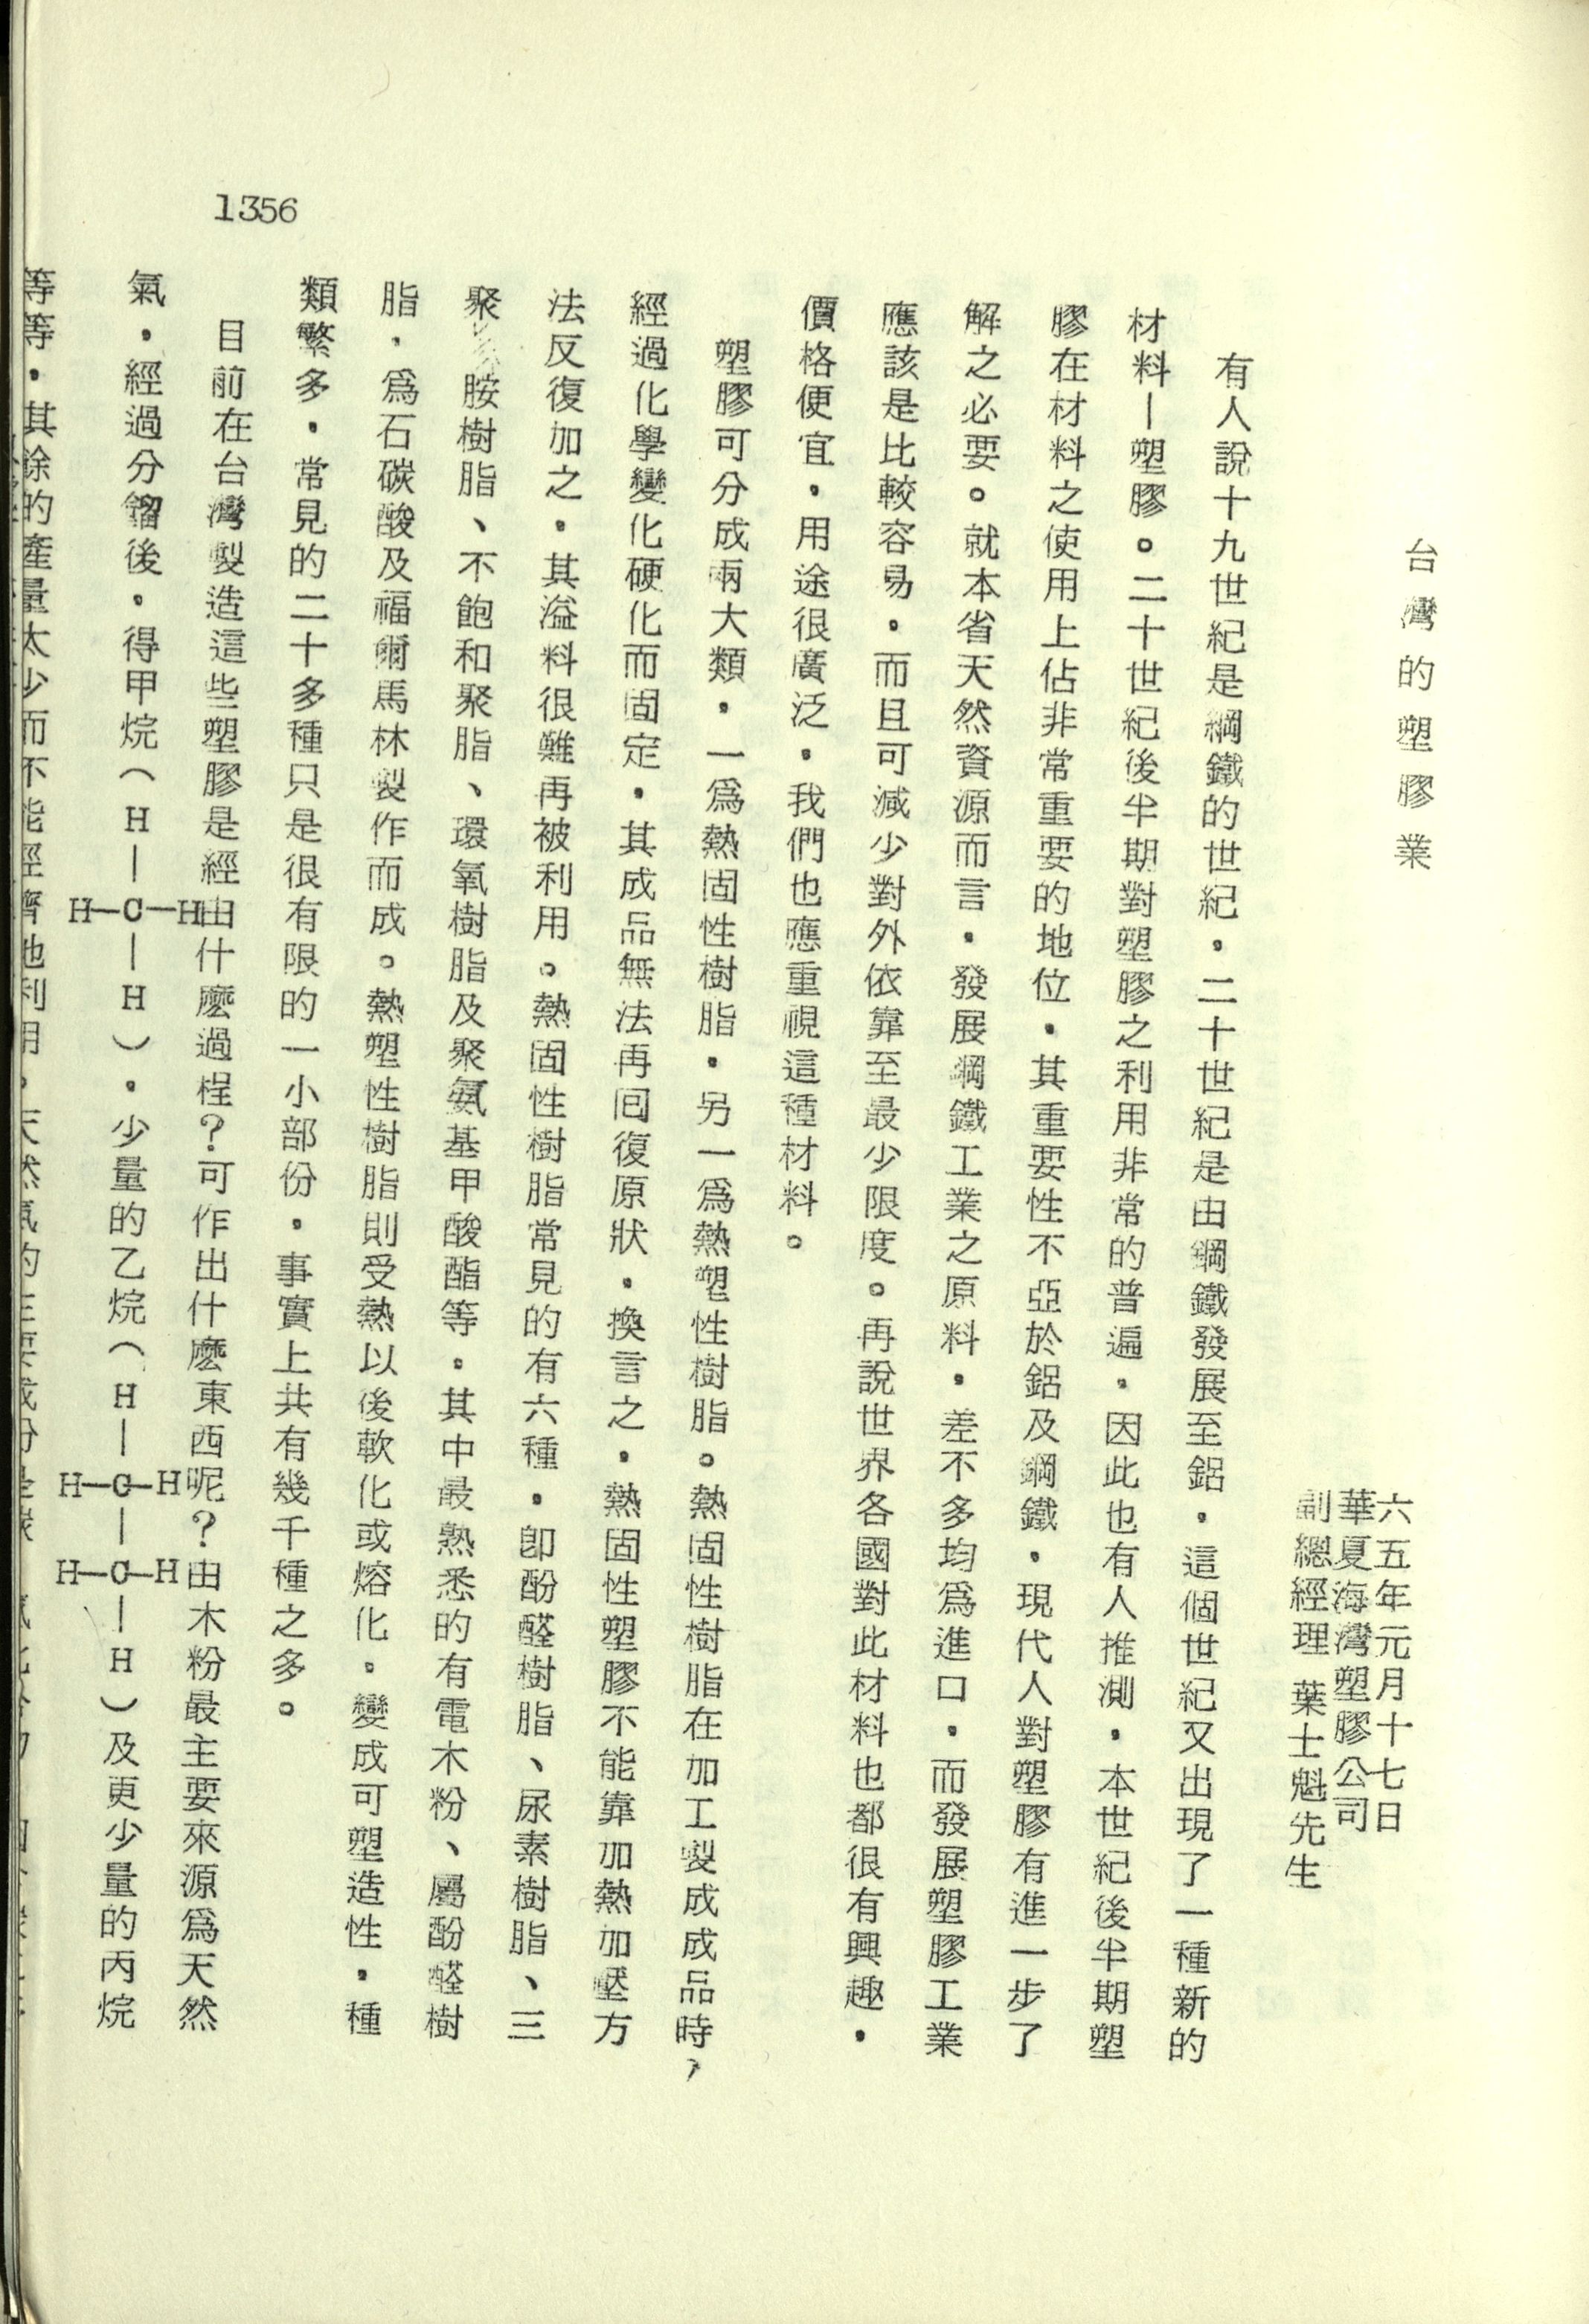 台灣的塑膠業
六五年元月十七日
華夏海灣塑膠公司
副總經理 葉士魁先生
有人說十九世紀是鋼鐵的世紀，二十世紀是由鋼鐵發展至鋁，這個世紀又出現了一種新的
材料—塑膠。二十世紀後半期對塑膠之利用非常的普遍，因此也有人推測，本世紀後半期塑
膠在材料之使用上佔非常重要的地位，其重要性不亞於鋁及鋼鐵，現代人對塑膠有進一步了
解之必要。就本省天然資源而言，發展鋼鐵工業之原料，差不多均為進口，而發展塑膠工業
應該是比較容易，而且可減少對外依靠至最少限度。再說世界各國對此材料也都很有興趣，
價格便宜，用途很廣泛，我們也應重視這種材料。
塑膠可分成兩大類，一為熱固性樹脂，另一為熱塑性樹脂。熱固性樹脂在加工製成成品時，
經過化學變化硬化而固定，其成品無法再回復原狀，換言之，熱固性塑膠不能靠加熱加壓方
法反復加之，其溢料很難再被利用。熱固性樹脂常見的有六種，即酚醛樹脂、尿素樹脂、三
聚胺樹脂、不飽和聚脂、環氧樹脂及聚氨基甲酸酯等。其中最熟悉的有電木粉、屬酚醛樹
脂，為石碳酸及福爾馬林製作而成。熱塑性樹脂則受熱以後軟化或熔化，變成可塑造性，種
類繁多，常見的二十多種只是很有限的一小部份，事實上共有幾千種之多。
目前在台灣製造這些塑膠是經由什麼過程？可作出什麼東西呢？由木粉最主要來源為天然
氣，經過分餾後，得甲烷（H—C—H H—H），少量的乙烷（H—C—H H—C—H H—H）及更少量的丙烷
等等，其餘的產量太少而不能經濟地利用，天然氣的主要成份是碳
1356